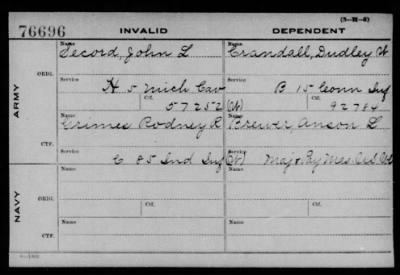 (3-M-6)
76696 INVALID DEPENDENT
Name Name
Secord, John L Crandall, Dudley W.
ORIG.
Service Service
H 5 Mich Cav B 15 Conn Inf
Ctf. Ctf.
57252 (W) 92784
ARMY
Name Name
Grimes Rodney R Brewer, Anson L
CTF.
Service Service
C 85 Ind Inf (W) Maj & Pay Mas. U.S. Vol
NAVY
Name Ctf. Name Ctf.
ORIG.
Name Name
CTF.